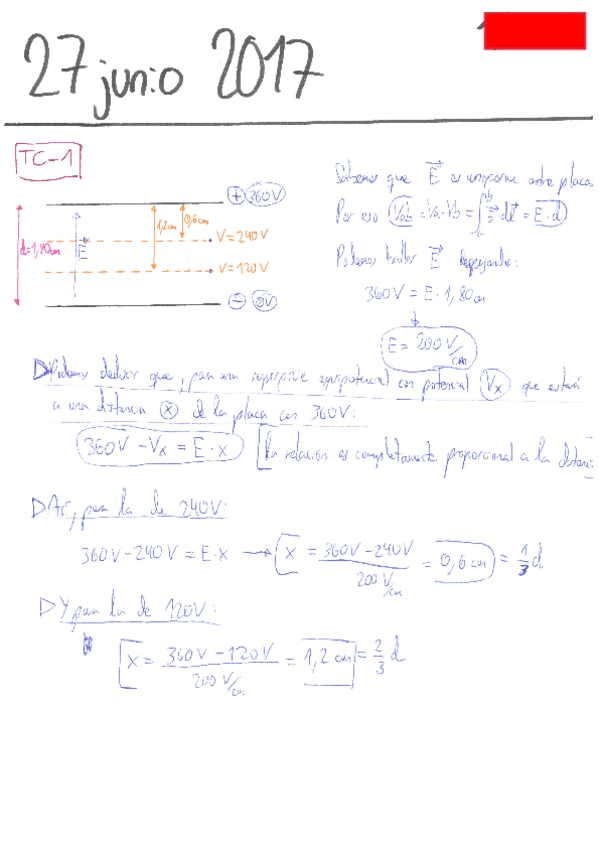 27 junio 2017
TC-1
+ 360V
1,2cm 0,6cm
d=1,80cm
E⃗
V=240V
V=120V
− 0V
Sabemos que E⃗ es uniforme entre placas
Por eso Vab = Va-Vb = ∫ₐᵇ E⃗ dl⃗ = E·d
Podemos hallar E⃗ despejando:
360V = E · 1,80cm
E = 200 V/cm
▷ Podemos deducir que, para una superficie equipotencial con potencial Vx que estará
a una distancia x de la placa con 360V:
360V - Vx = E · x [la relación es completamente proporcional a la distancia
▷ Así, para la de 240V:
360V - 240V = E·x → x = (360V - 240V) / (200 V/cm) = 0,6 cm = 1/3 d
▷ Y para la de 120V:
x = (360V - 120V) / (200 V/cm) = 1,2 cm = 2/3 d